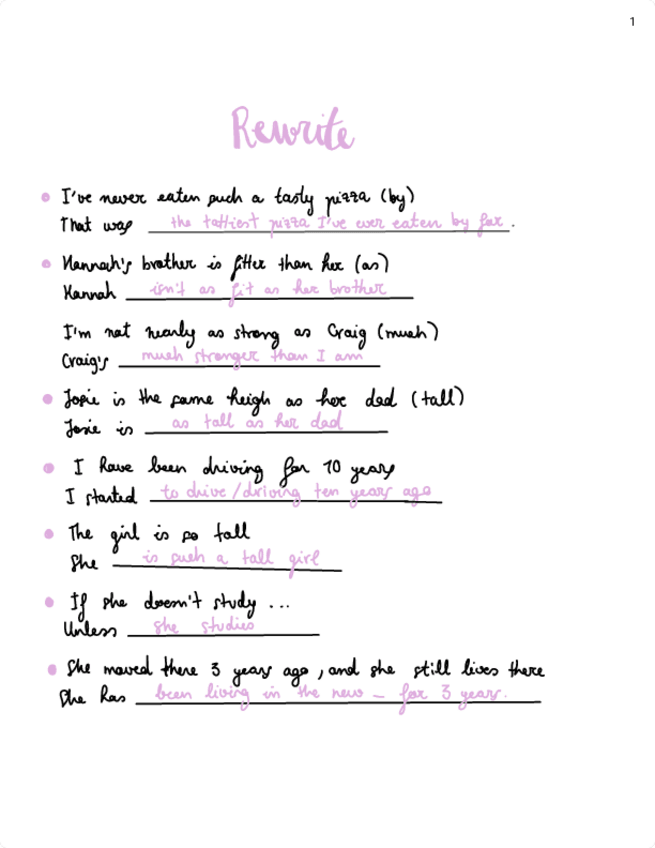 1
Rewrite
I've never eaten such a tasty pizza (by)
That was the tattiest pizza I've ever eaten by far.
Hannah's brother is fitter than her (as)
Hannah isn't as fit as her brother
I'm not nearly as strong as Craig (much)
Craig's much stronger than I am
Josie is the same heigh as her dad (tall)
Josie is as tall as her dad
I have been driving for 10 years
I started to drive/driving ten years ago
The girl is so tall
She is such a tall girl
If she doesn't study ...
Unless she studies
She moved there 3 years ago, and she still lives there
She has been living in the new – for 3 years.